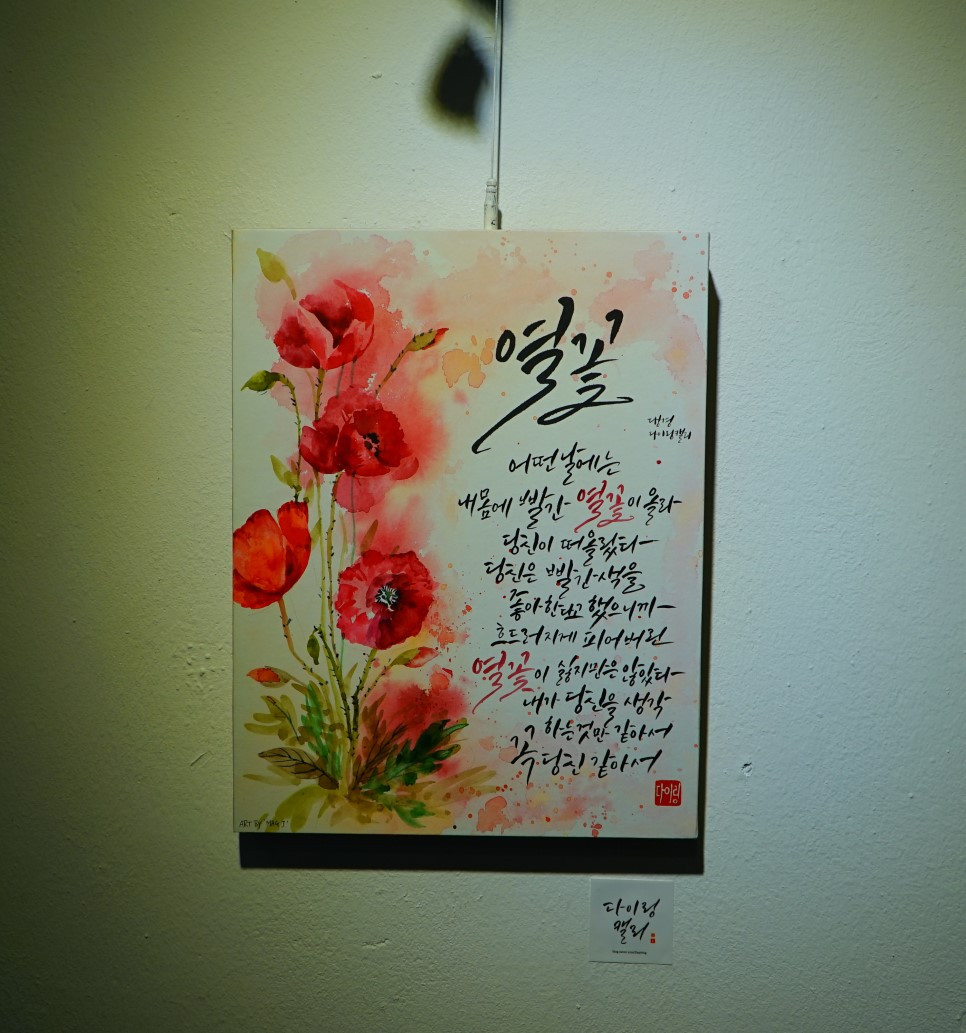 열꽃
다이링캘리
어떤날에는
내몸에 빨간 열꽃이 올라
당신이 떠올랐다
당신은 빨간색을
좋아한다고 했으니까
흐드러지게 피어버린
열꽃이 싫지만은 않았다
내가 당신을 생각
하는것만 같아서
꼭 당신 같아서
다이링
ART BY
다이링
캘리